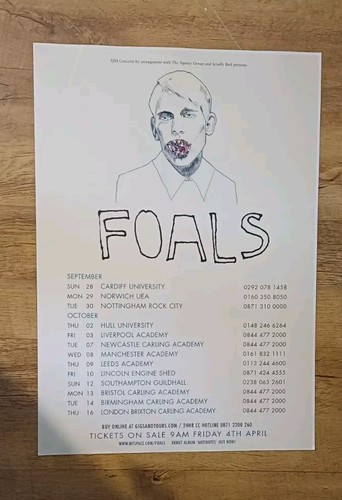 SJM Concerts by arrangement with The Agency Group and Serially Bad presents
FOALS
SEPTEMBER
SUN 28 CARDIFF UNIVERSITY 0292 078 1458
MON 29 NORWICH UEA 0160 350 8050
TUE 30 NOTTINGHAM ROCK CITY 0871 310 0000
OCTOBER
THU 02 HULL UNIVERSITY 0148 246 6264
FRI 03 LIVERPOOL ACADEMY 0844 477 2000
TUE 07 NEWCASTLE CARLING ACADEMY 0844 477 2000
WED 08 MANCHESTER ACADEMY 0161 832 1111
THU 09 LEEDS ACADEMY 0113 244 4600
FRI 10 LINCOLN ENGINE SHED 0871 424 4555
SUN 12 SOUTHAMPTON GUILDHALL 0238 063 2601
MON 13 BRISTOL CARLING ACADEMY 0844 477 2000
TUE 14 BIRMINGHAM CARLING ACADEMY 0844 477 2000
THU 16 LONDON BRIXTON CARLING ACADEMY 0844 477 2000
BUY ONLINE AT GIGSANDTOURS.COM / 24HR CC HOTLINE 0871 2200 260
TICKETS ON SALE 9AM FRIDAY 4TH APRIL
WWW.MYSPACE.COM/FOALS DEBUT ALBUM 'ANTIDOTES' OUT NOW!